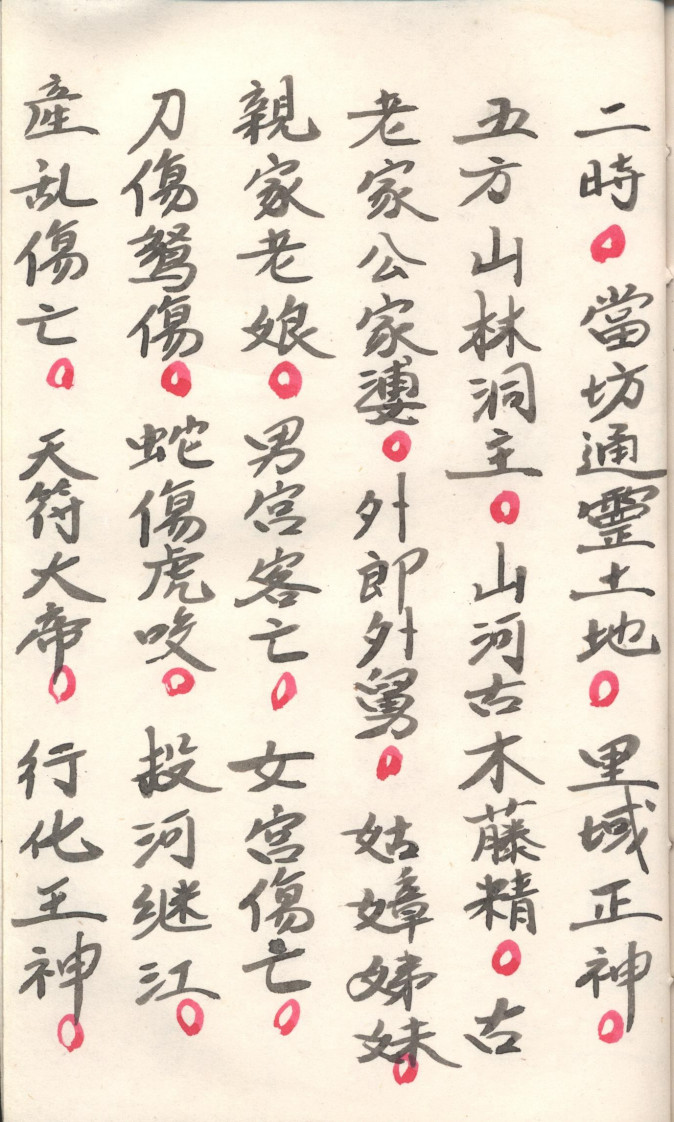 二時○當坊通靈土地○里域正神○
五方山林洞主○山河古木藤精○古
老家公家婆○外郎外舅○姑嫜娣妹○
親家老娘○男宫客亡○女宫傷亡○
刀傷鴛傷○蛇傷虎咬○投河継江○
産乱傷亡○天符大帝○行化王神○